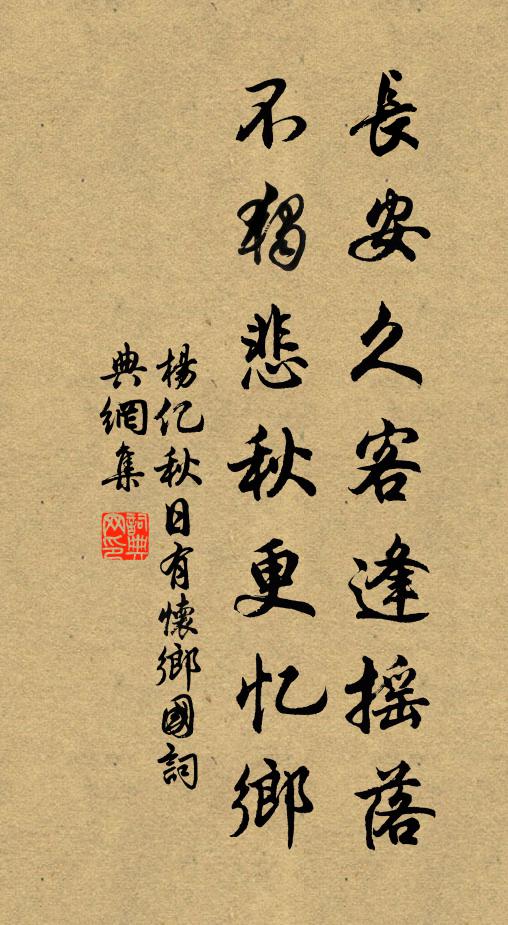 長安久客逢摇落
不独悲秋更忆鄉
楊亿秋日有懷鄉國詞
典網集
詞典网印